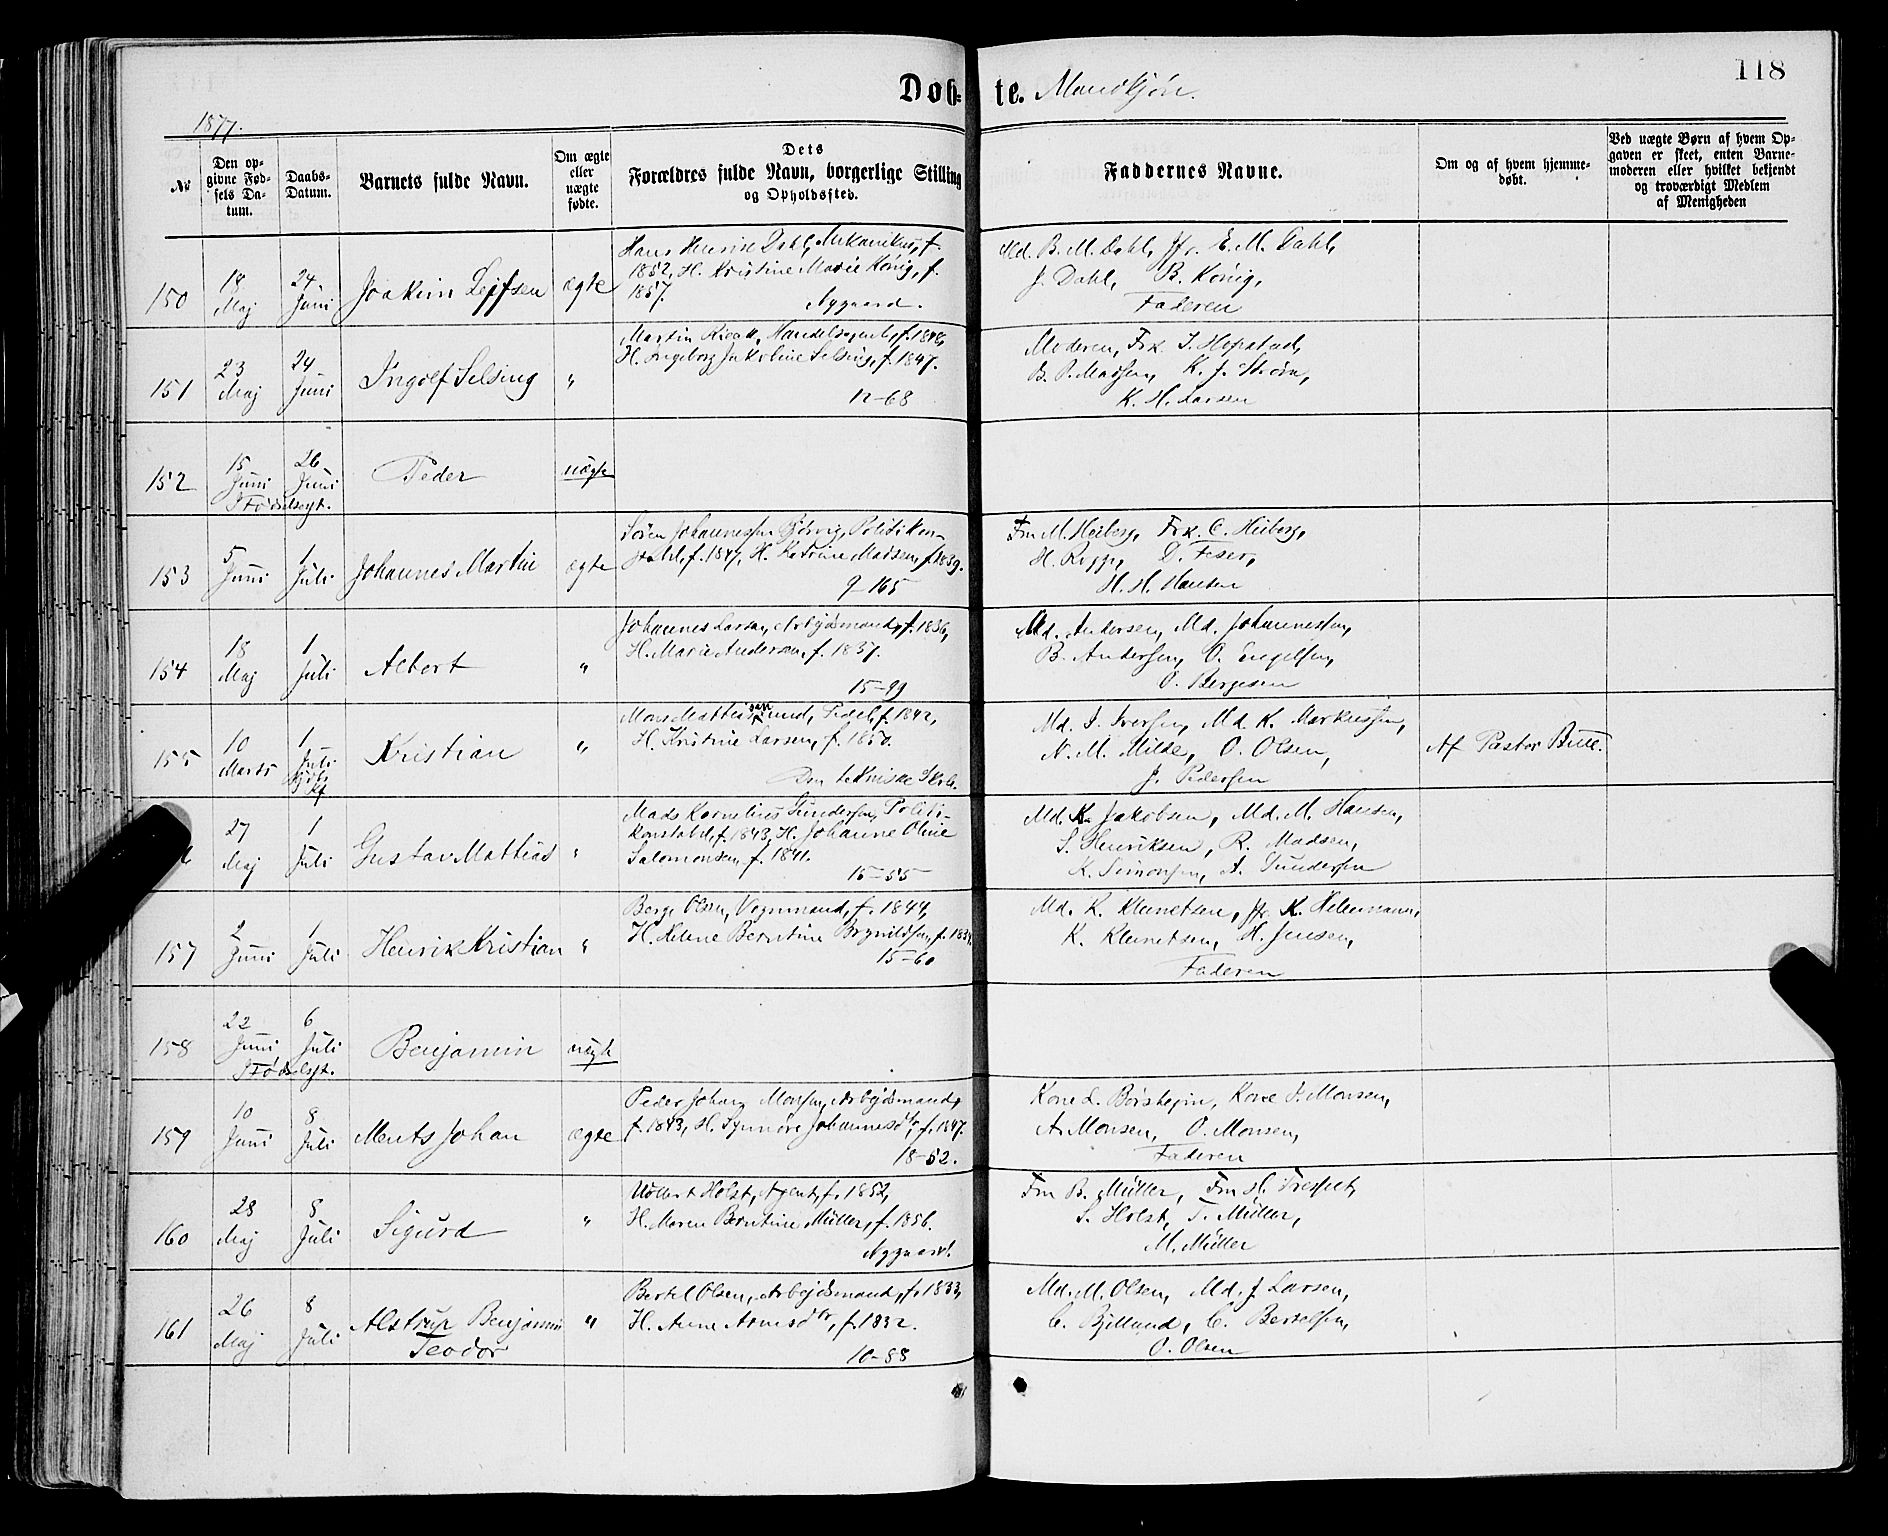 Døb-te. Mandkjøn.
118
1877.
No
Den opgivne Fødsels Datum.
Daabs-Datum.
Barnets fulde Navn.
Om ægte eller uægte fødte.
Dets Forældres fulde Navn, borgerlige Stilling og Opholdssted.
Faddernes Navne.
Om og af hvem hjemmedøbt.
Ved uægte Børn af hvem Opgaven er skeet, enten Barnemoderen eller hvilket bekjendt og troværdigt Medlem af Menigheden
150 18 Maj 24 Juni Joakim Lejfsen ægte
Hans Henrik Dahl, Mekanikus, f.
1852, H. Kristine Marie König, f.
1857.
Nygaard.
Md. B. M. Dahl, Jfr. E. M. Dahl,
J. Dahl, B. König,
Faderen
151 23 Maj 24 Juni Ingolf Selsing "
Martin Handelsagent, f. 1848,
H. Ingeborg Jakobine Selsing, f. 1847.
12-68
Moderen, Frk. I. Hopstad,
B. P. Madsen, K. J.
K. H. Larsen
152 15 Juni 26 Juni Peder uægte
Fødselsst.
153 5 Juni 1 Juli Johannes Martin ægte
Søren Johannessen Politikon-
stabel, f. 1847, H. Katrine Madsen, f. 1839.
9-165
Fru M. Heiberg, Frk. C. Heiberg,
H. D.
H. H. Hansen
154 18 Maj 1 Juli Albert "
Johannes Larsen, Arbejdsmand, f. 1836,
H. Marie Andersen, f. 1837.
15-99
Md. Andersen, Md. Johannessen,
B. Andersen, O. Engelsen,
O. Bergesen
155 10 Marts 1 Juli Kristian "
Mons Pedel, f. 1842,
H. Kristine Larsen, f. 1850.
Den tekniske Skole.
Md. I. Iversen, Md. K. Markussen,
N. M. Milde, O. Olsen,
J. Pedersen
Af Pastor
27 Maj 1 Juli Gustav Mattias "
Mads Kornelius Gundersen, Politi-
konstabel, f. 1843, H. Johanne Oline
Salomonsen, f. 1841.
15-55
Md. K. Jakobsen, Md. M. Hansen,
S. Henriksen, R. Madsen,
K. Simonsen, A. Gundersen
157 2 Juni 1 Juli Henrik Kristian "
Berge Olsen, Vognmand, f. 1844,
H. Helene Berntine Brynildsen,
15-60
Md. K. Klemetsen, Jfr. K.
K. Klemetsen, H. Jensen,
Faderen
158 22 Juni 6 Juli Benjamin uægte
Fødselsst.
159 10 Juni 8 Juli Ments Johan ægte
Peder Johan Monsen, Arbejdsmand,
f. 1843, H. Synnøve Johannesdtr, f. 1847.
18-52.
Kone L. Kone I. Monsen,
A. Monsen, O. Monsen,
Faderen
160 28 Maj 8 Juli Sigurd "
Holst, Agent, f. 1852,
H. Maren Berntine Müller, f. 1856.
Nygaard.
Fru B. Müller, Fru H.
S. Holst, T. Müller,
M. Müller
161 26 Maj 8 Juli Alstrup Benjamin "
Teodor
Bertel Olsen, Arbejdsmand, f. 1833,
H. Anne Arnesdtr, f. 1832.
10-88
Md. M. Olsen, Md. J. Larsen,
C. Bjelland, C. Bertelsen,
O. Olsen